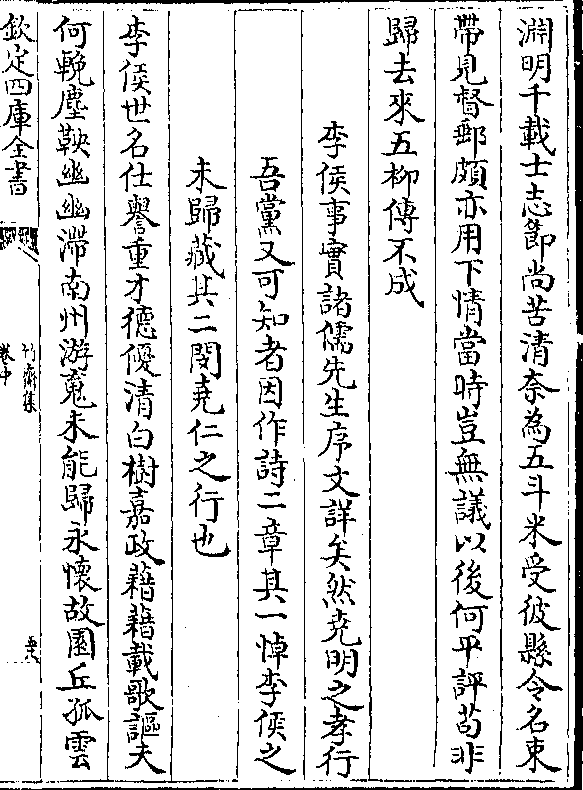 淵明千載士志節尚苦清奈為五斗米受彼縣令名束
帶見督郵頗亦用下情當時豈無議以後何平評苟非
歸去來五柳傳不成
李侯事實諸儒先生序文詳矣然堯明之孝行
吾黨又可知者因作詩二章其一悼李侯之
未歸藏其二閔堯仁之行也
李侯世名仕譽重才德優清白樹嘉政藉藉載歌謳夫
何輓塵鞅幽幽滯南州游䰟未能歸永懷故園丘孤雲
欽定四庫全書
竹齋集
卷中